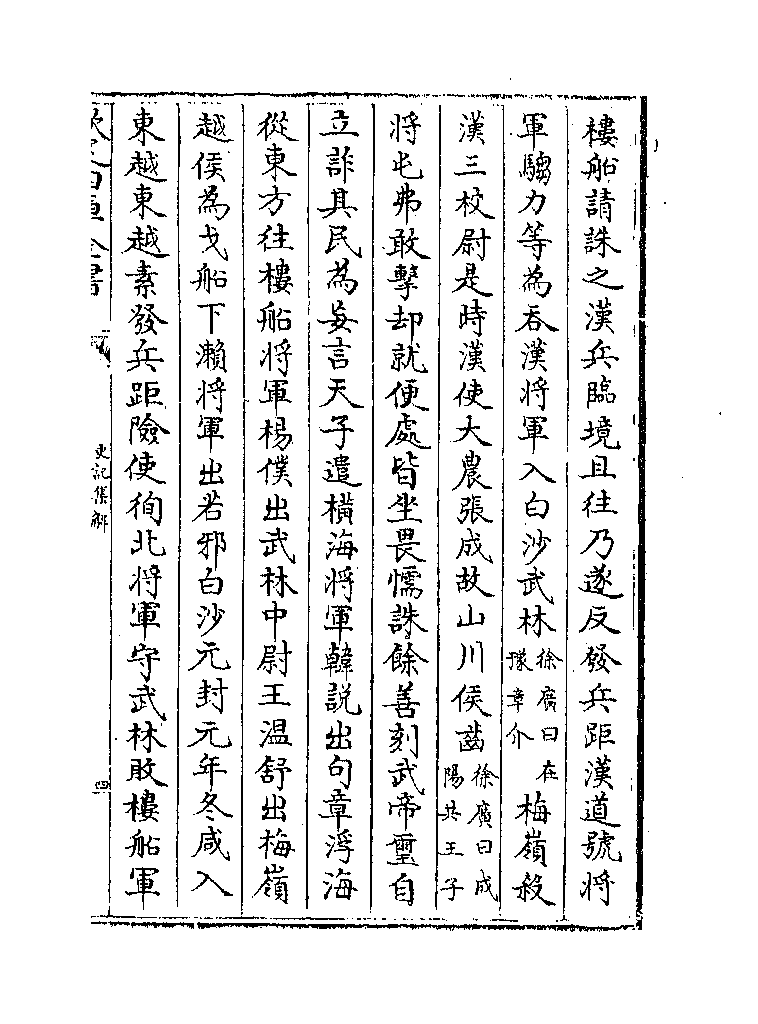 樓船請誅之漢兵臨境且往乃遂反發兵距漢道號將
軍騶力等為吞漢將軍入白沙武林徐廣曰在豫章介梅嶺殺
漢三校尉是時漢使大農張成故山川侯齒徐廣曰成陽共王子
將屯弗敢擊却就便處皆坐畏懦誅餘善刻武帝璽自
立詐其民為妄言天子遣橫海將軍韓説出句章浮海
從東方往樓船將軍楊僕出武林中尉王溫舒出梅嶺
越侯為戈船下瀨將軍出若邪白沙元封元年冬咸入
東越東越素發兵距險使徇北將軍守武林敗樓船軍
史記集解
四